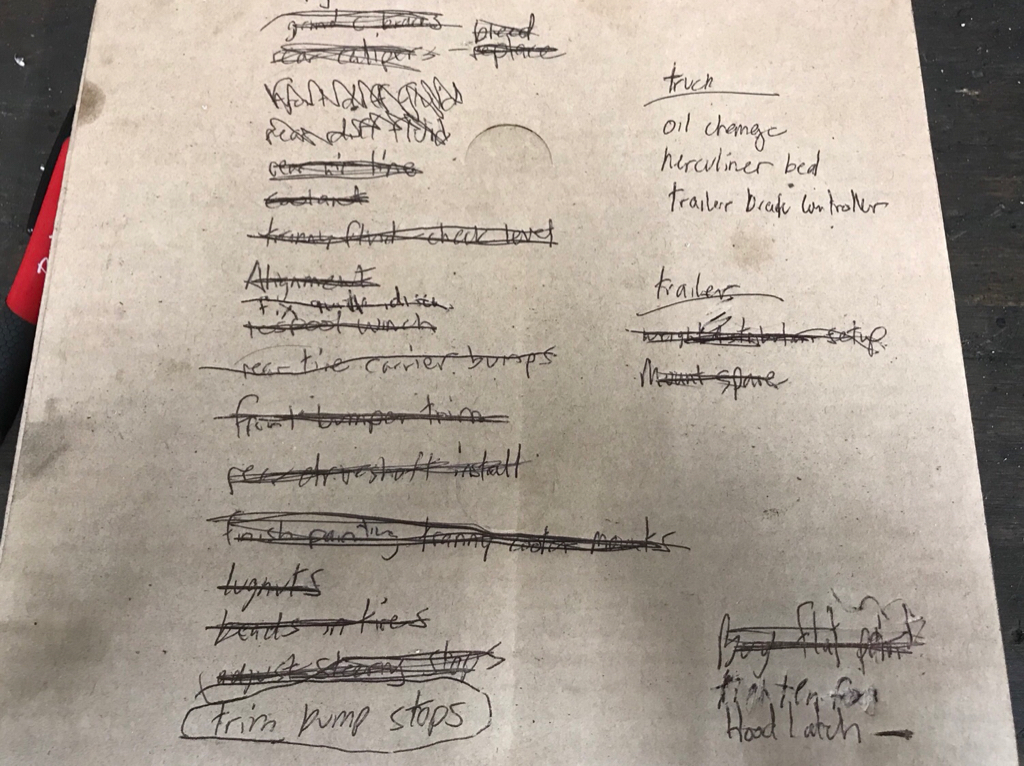 grind c braces bleed
rear calipers - replace
rear diff fluid
rear air line
coolant
tranny fluid check level
Alignment
fix
respool winch
rear tire carrier bumps
front bumper trim
rear driveshaft install
finish painting tranny cooler mounts
lugnuts
beads in tires
adjust steering stops
trim bump stops
truck
oil change
herculiner bed
trailer break controller
trailers
setup
Mount spare
Buy flat paint
tighten fog
Hood latch